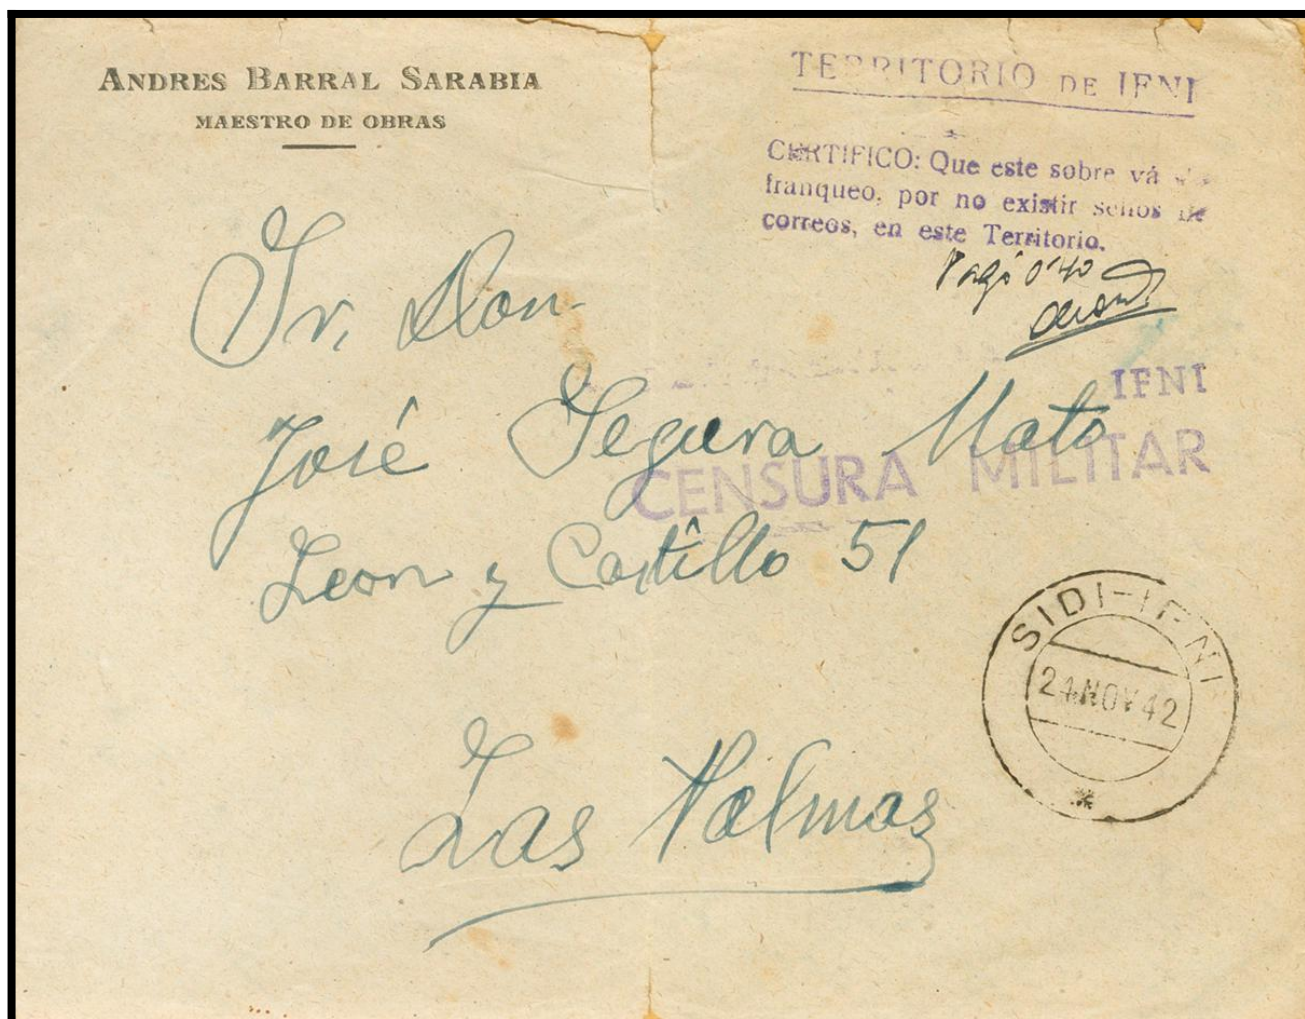 ANDRES BARRAL SARABIA
MAESTRO DE OBRAS
TERRITORIO DE IFNI
CERTIFICO: Que este sobre vá
franqueo, por no existir sellos de
correos, en este Territorio.
Pagó 0'40
Sr. Don
IFNI
José Segura Mato
CENSURA MILITAR
Leon y Castillo 51
SIDI-IFNI
24 NOV 42
Las Palmas